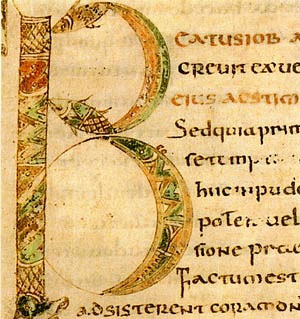 BEATUSIOB A
CREUIT EX UE
EIUS AESTIM
Sed quia prim
se temp
huc inpud
uel
sione
Factum est
adsisterent coram